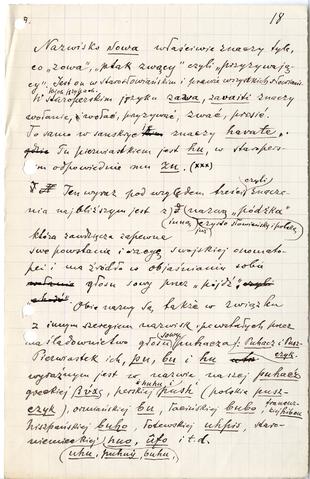 9. 18
Nazwisko Sowa właściwie znaczy tyle,
co „zowa", „ptak zwący" czyli „przyzywają-
cy". Jest on w starosłowiańskim i prawie wszystkich słowiańs.
W staroperskim języku zawa, zavaiti znaczy
wołanie, wołać, przyzywać, zwać, prosić.
To samo w sanskryc znaczy havate.
Tu pierwiastkiem jest hu, w staropers-
kim odpowiednie mu zu. (xxx)
Ten wyraz pod względem treści czyli znacze-
nia najbliższym jest z nazwą „pódźka"
inną czysto słowiańską i polską
która zawdzięcza zapewne
swe powstanie i rację swojskiej onomato-
pei i ma źródło w objaśnianiu sobie
głosu sowy przez „pójdź"
Obie nazwy są także w związku
z innym szeregiem nazwisk, powstałych przez
naśladownictwo głosu puhacza. f. Puhacz i Pusz-
Pierwiastek ich, pu, bu i hu czyk.
wyrażonym jest w nazwie naszej puhacz
greckiej βύχς, perskiej push (polskie pusz-
czyk), ormiańskiej bu, łacińskiej bubo, francus-
kiej hibou
hiszpańskiej buho, żydewskiej uhpis, staro-
niemieckiej huo, ûfo i t.d.
(uhu, puhuj, buhu,)